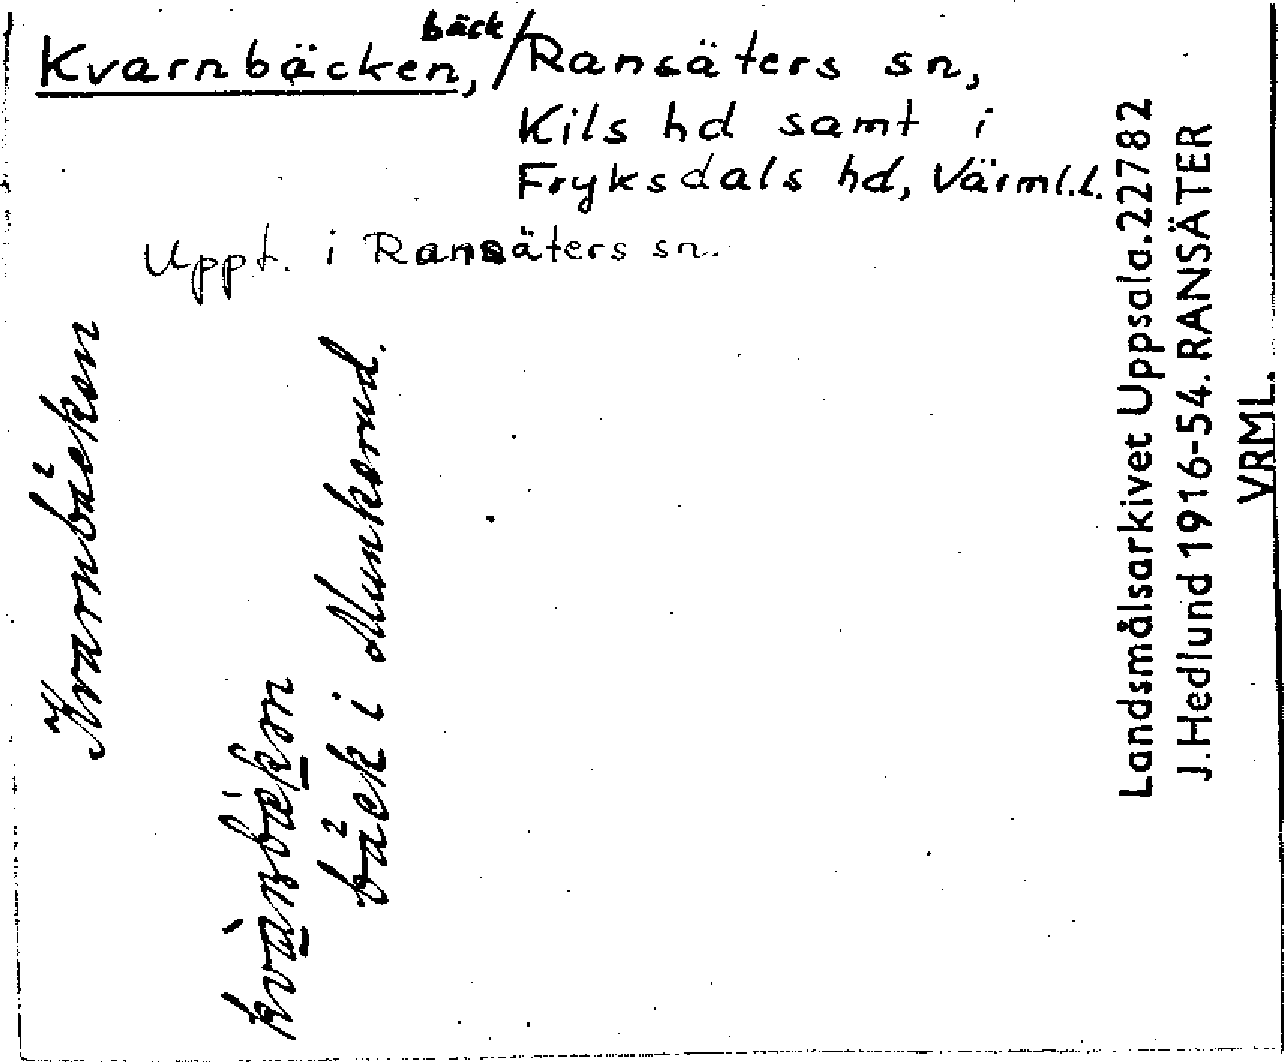 Kvarnbäcken, bäck / Ransäters sn,
Kils hd samt i
Fryksdals hd, Värml.l.
Uppt. i Ransäters sn.
Kvarnbäcken
bäck i Munkerud.
Landsmålsarkivet Uppsala. 22782
J. Hedlund 1916-54. RANSÄTER
VRML.